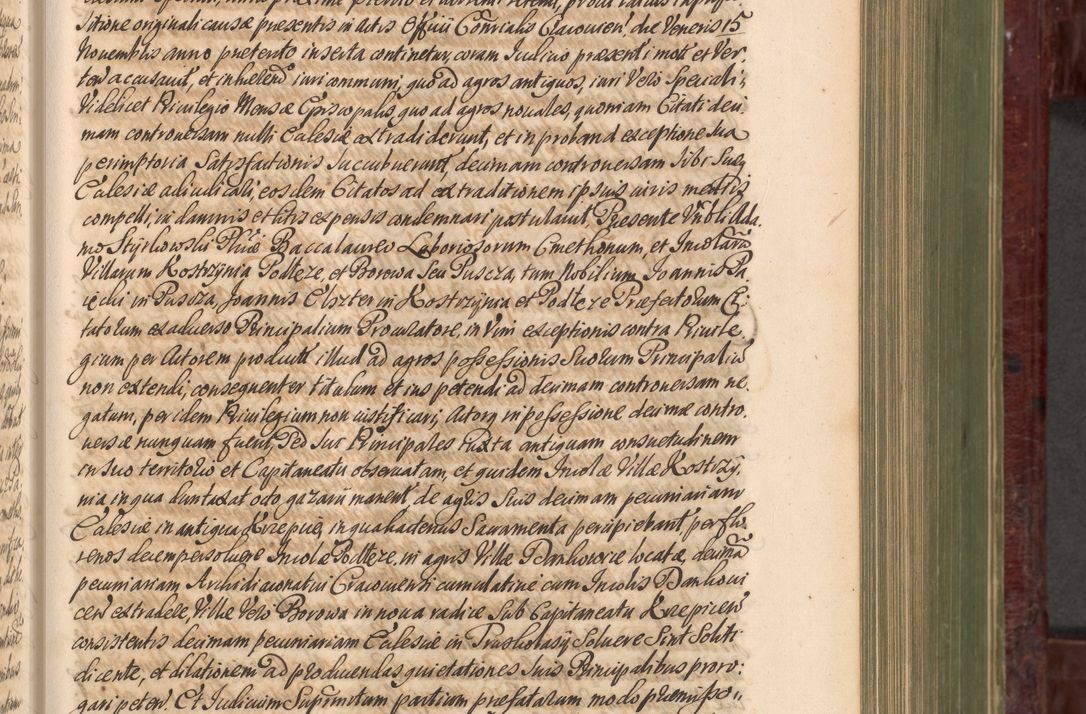 sitione originali causæ præsentis in actis Officii Consialis Cracovien, die Veneris 15
Novembris anno prætento inserta continetur, coram Iudicio præsenti mot et ver
ton accusavit, et inhæred iuri communi, quo ad agros antiquos, iuri Vero speciali,
Videlicet Privilegio Mensæ Episcopalis, quo ad agros novales, quoniam Citati deci
mam controversam nulli Ecclesiæ extradiderunt, et in proband exceptione sua
perimptoria Satisfactionis succubuerunt, decimam controversam Sibi Suæq
Ecclesiæ adiudicali, eosdem Citatos ad extraditionem ipsius iuris mediis
compelli, in damnis et litis expensis condemnari postulavit, Præsente Vnbli Ada
mo Stijrkowski Phiæ Baccalaureo Laboriosorum Cmethonum, et Incolarũ
Villarum Kostrzynia Podłęze, et Borowa Seu Puscza, tum Nobilium Joannis Pa
iecki in Puscza, Joannis Elszter in Kostrzynia et Podłęze Præfectorum Ci
tatorum ex adverso Principalium Procuratore, in Vim exceptionis contra Privile
gium per Actorem product illud ad agros possessionis Suorum Principaliũ
non extendi, consequenter titulum et ius petendi ad decimam controversam ne
gatum, per idem Privilegium non iustificari, Actorq in possessione decimæ contro
versæ nunquam fuerit, Sed sui Principales iuxta antiquam consuetudinem
in suo territorio et Capitaneatu observatam, et quidem Incolæ Villæ Kostrzy
nia in qua duntaxat octo gazarii manent, de agris suis decimam pecuniariam
Ecclesiæ in antiqua Krzepice, in qua hactenus Sacramenta percipiebant per flo
renos decem persolvere Incolæ Podłęze, in agris Villæ Dankowice locatæ, decimã
pecuniariam Archidiaconatui Cracoviensi cumulative cum Incolis Dankovi
cen extradere, Villæ Vero Borowa in nova radice sub Capitaneatu Krzepicen
consistentis decimam pecuniariam Ecclesiæ in Truskolasy Solvere Sint Soliti
dicente, et dilationem ad producendas quietationes suis Principalibus proro
gari peten. Et Iudicium Supremum partium præfatarum modo præmisso